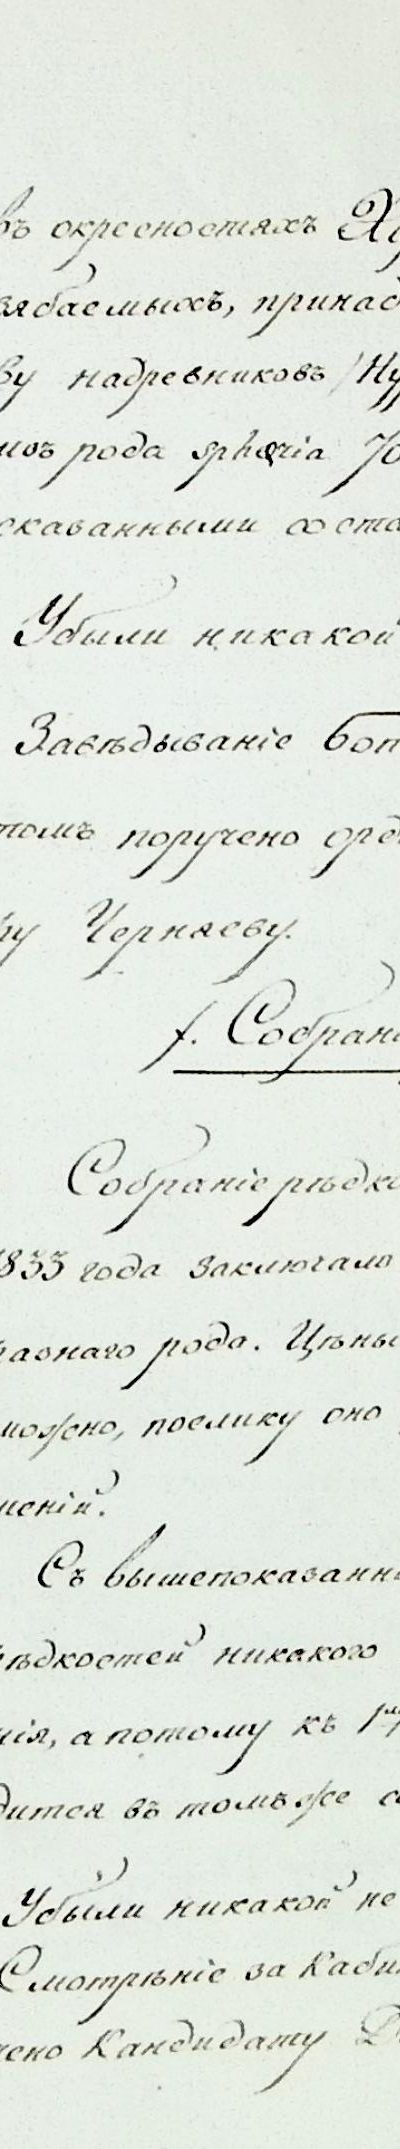 въ окресностяхъ Ха
зябаемыхъ, принад
ву надревниковъ (Ну
изъ рода sphæria 70
сказанными соста
Убыли никакой
Завѣдываніе бот
томъ поручено орди
ру Черняеву.
f. Собрані
Собраніе рѣдко
1833 года заключало
разнаго рода. Цѣны
можно, поелику оно
шеній.
Съ вышепоказанна
рѣдкостей никакого
нія, а потому къ 1му
дится въ томъ же со
Убыли никакой не
Смотрѣніе за Каби
чено Кандидату